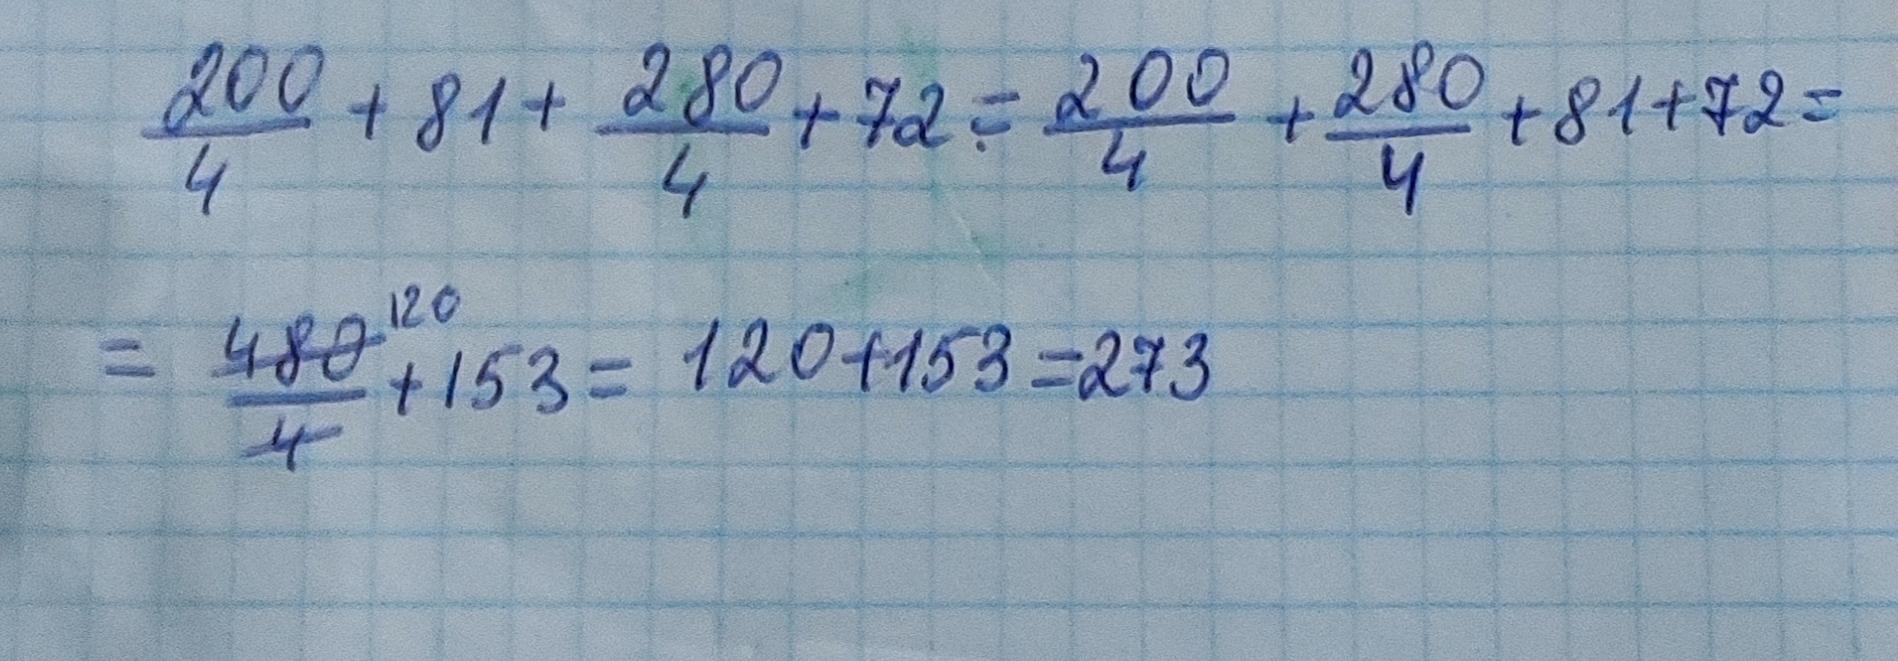 200/4 + 81 + 280/4 + 72 = 200/4 + 280/4 + 81 + 72 =
= 480/4 120 + 153 = 120 + 153 = 273